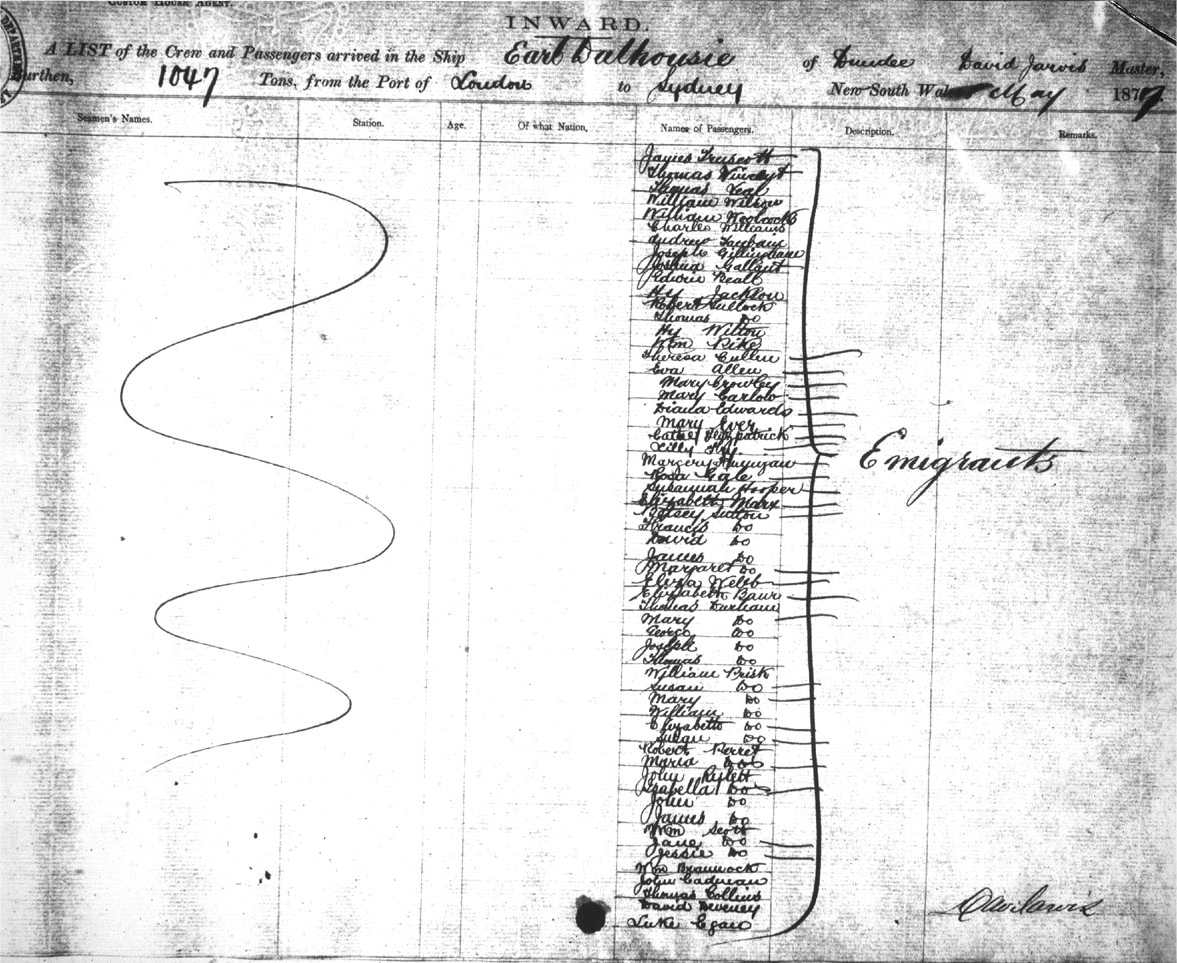 CUSTOM HOUSE AGENT.
INWARD.
A LIST of the Crew and Passengers arrived in the Ship Earl Dalhousie of Dundee David Jarvis Master,
Burthen, 1047 Tons, from the Port of London to Sydney New South Wales May 187
Seamen's Names. Station. Age. Of what Nation. Names of Passengers. Description. Remarks.
James Truscott
Thomas Vincent
Thomas Veal
William Wilson
William Woolcock
Charles Williams
Andrew
Joseph Gillingham
Joshua Gallant
Edwin Beall
Hy Jackson
Robert Sullock
Thomas Do
Hy Wilton
Wm Pike
Theresa Cullen
Eva Allen
Mary Crowley
Mary Carlow
Diana Edwards
Mary Ever
Cathe Fitzpatrick
Lilly Fry
Margery
Rosa Gale
Susannah Hooper
Elizabeth Marx
Betsey Sutton
Francis Do
David Do
James Do
Margaret Do
Eliza Webb
Elizabeth Bawr
Thomas Durham
Mary Do
George Do
Joseph Do
Thomas Do
William Brisk
Susan Do
Mary Do
William Do
Elizabeth Do
Susan Do
Robert Perret
Maria Do
John
Isabella Do
John Do
James Do
Wm Scott
Jane Do
Jessie Do
Wm Brannock
John Cadman
Thomas Collins
David Deveney
Luke Egan
Emigrants